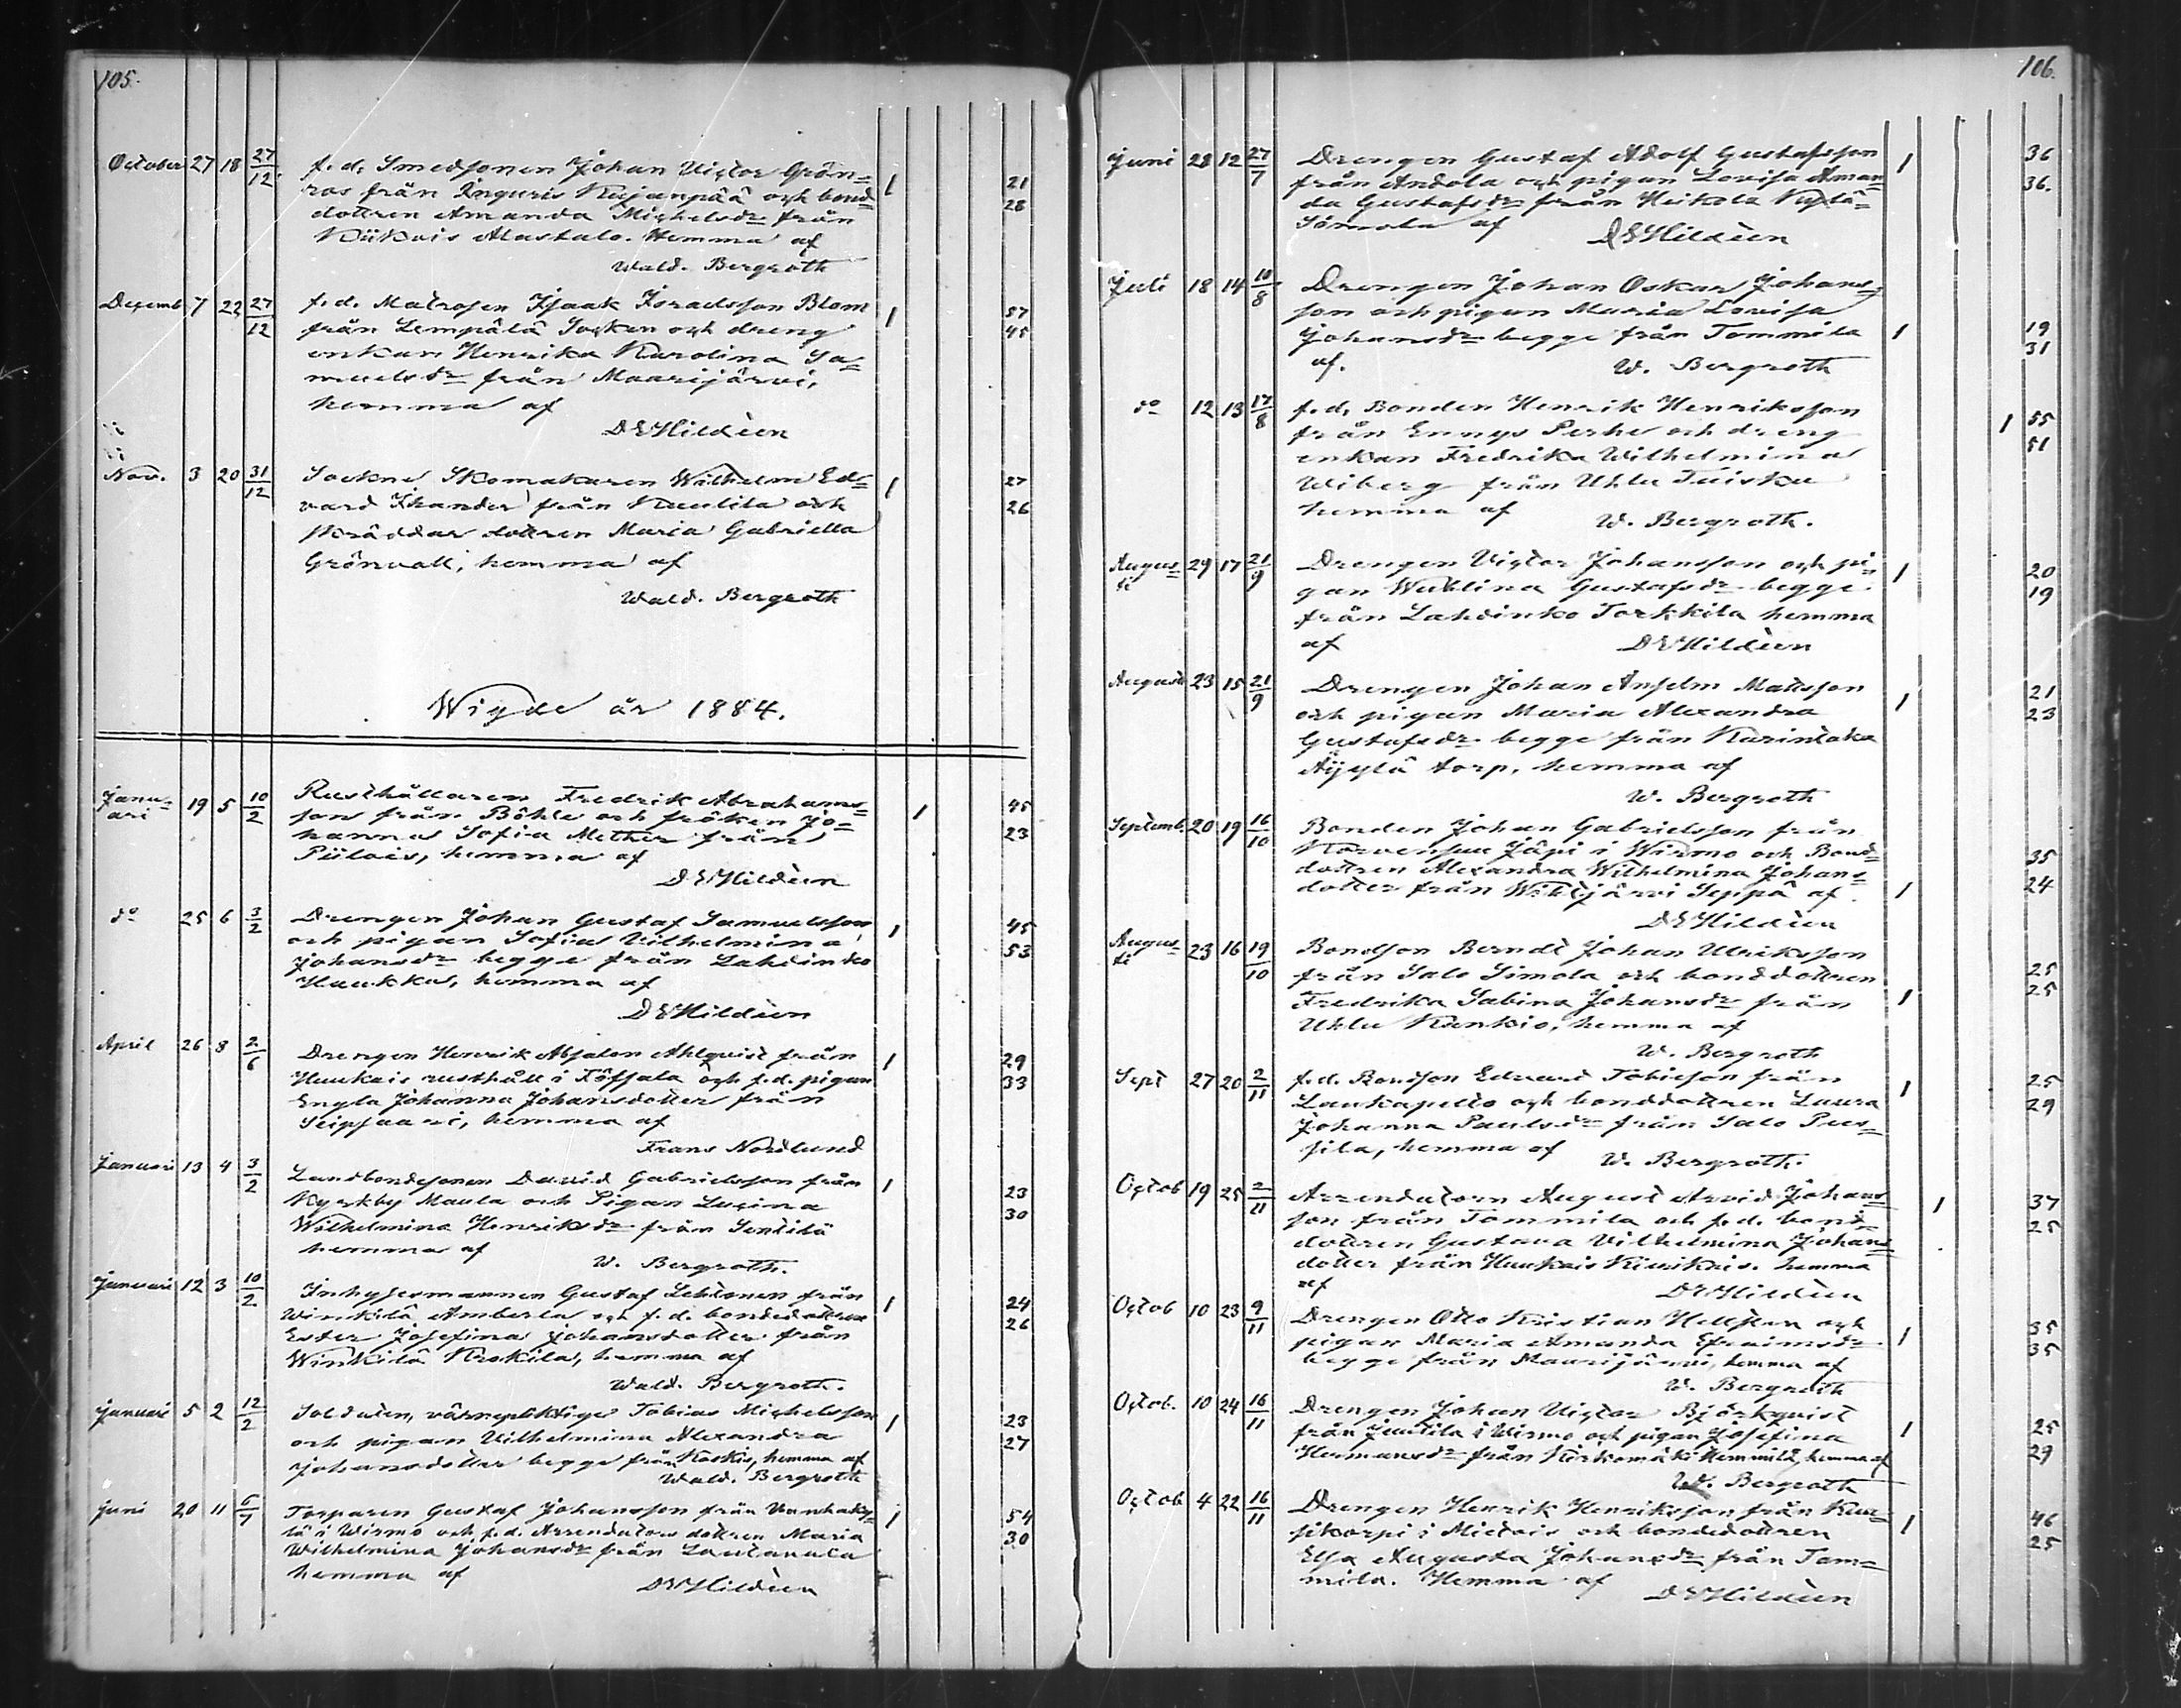 105.
October 27 18 27/12 f. d. Smedsonen Johan Victor Grön= 1 21
ros från Inguris Kujanpää och bond= 28
dottren Amanda Michelsdr från
Kükois Alastalo. Hemma af
Wald. Bergroth
Decemb. 7 22 27/12 f. d. Matrosen Isaak Israelsson Blom 1 57
från Lempälä Socken och dreng 45
enkan Henrika Karolina Sa=
muelsdr från Maarijärvi,
hemma af
D E Hildeen
Nov. 3 20 31/12 Sockne Skomakaren Wilhelm Ed= 1 27
vard Ikander från Kaulila och 26
skräddar dottren Maria Gabriella
Grönvall, hemma af
Wald. Bergroth
Wigde år 1884.
Janu=
ari 19 5 10/2 Rusthållaren Fredrik Abrahams= 1 45
son från Böhle och fröken Jo= 23
hanna Sofia Mether från
Piilois, hemma af
D E Hildeen
do 25 6 3/2 Drengen Johan Gustaf Samuelsson 1 45
och pigan Sofia Vilhelmina 53
Johansdr begge från Lahdinko
Haukka, hemma af
D E Hildeen
April 26 8 2/6 Drengen Henrik Absalon Ahlqvist från 1 29
Huukais rusthåll i Töfsala och f. d. pigan 33
Engla Johanna Johansdotter från
Seipsaari, hemma af
Frans Nordlund
Januari 13 4 3/2 Landbondesonen David Gabrielsson från 1 23
Kyrkby Maula och Pigan Lucina 30
Wilhelmina Henriksdr från Sentilä
hemma af
W. Bergroth.
Januari 12 3 10/2 Inhysesmannen Gustaf Lehtonen från 1 24
Winkilä Amberla och f. d. bondedottren 26
Ester Josefina Johansdotter från
Winkilä Krokila, hemma af
Wald. Bergroth.
Januari 5 2 12/2 Soldaten, värnepliktige Tobias Michelsson 1 23
och pigan Vilhelmina Alexandra 27
Johansdotter begge från Koskis, hemma af
Wald. Bergroth
Juni 20 11 6/7 Torparen Gustaf Johansson från Vanhaky= 1 54
lä i Wirmo och f. d. Arrendators dottren Maria 30
Wilhelmina Johansdr från Lautanala
hemma af
D E Hildeen
106.
Juni 28 12 27/7 Drengen Gustaf Adolf Gustafsson 1 36
från Andola och pigan Lovisa Aman= 36.
da Gustafsdr från Heikola Kylä=
Sämola af
D E Hildeen
Juli 18 14 10/8 Drengen Johan Oskar Johans=
son och pigan Maria Lovisa
Johansdr begge från Tommila 1 19
af. 31
W. Bergroth
do 12 13 17/8 f. d. Bonden Henrik Henriksson 1 55
från Ennys Perhe och dreng 51
enkan Fredrika Wilhelmina
Wiberg från Uhlu Tuisku
hemma af
W. Bergroth.
Augus=
ti 29 17 21/9 Drengen Victor Johansson och pi= 1 20
gan Wilhlina Gustafsdr begge 19
från Lahdinko Torkkila hemma
af
D E Hildeen
Augusti 23 15 21/9 Drengen Johan Anselm Mattsson 21
och pigan Maria Alexandra 1 23
Gustafsdr begge från Karintaka
Äyylä torp, hemma af
W. Bergroth
Septemb. 20 19 16/10 Bonden Johan Gabrielsson från
Korvensuu Jäpi i Wirmo och Bond= 35
dottren Alexandra Wilhelmina Johans= 24
dotter från Wiktjärvi Seppä af. 1
D E Hildeen
Augus=
ti 23 16 19/10 Bondson Berndt Johan Ulriksson
från Salo Simola och bonddottren 25
Fredrika Sabina Johansdr från 1 25
Uhlu Kankio, hemma af
W. Bergroth
Sept 27 20 2/11 f. d. Bondson Edvard Tobiesson från 1 25
Laukapelto och bonddottren Laura 29
Johanna Paulsdr från Salo Pus=
sila, hemma af
W. Bergroth.
Octob 19 25 2/11 Arrendatorn August Arvid Johans= 1 37
son från Tommila och f. d. bond= 25
dottren Gustava Vilhelmina Johans=
dotter från Huukais Kiurikais. hemma
af
D E Hildeen
Octob 10 23 9/11 Drengen Otto Kristian Hellsten och 35
pigan Maria Amanda Efraimsdr 1 35
begge från Maarijärvi, hemma af
W. Bergroth
Octob. 10 24 16/11 Drengen Johan Victor Björkqvist
från Juutila i Wirmo och pigan Josefina 1 25
Hermansdr från Kirkomäki Hemmilä, hemma af 29
W. Bergroth
Octob 4 22 16/11 Drengen Henrik Henriksson från Kuu=
sikorpi i Mietois och bondedottren 1 46
Elsa Augusta Johansdr från Tam= 25
mila. Hemma af
D E Hildeen